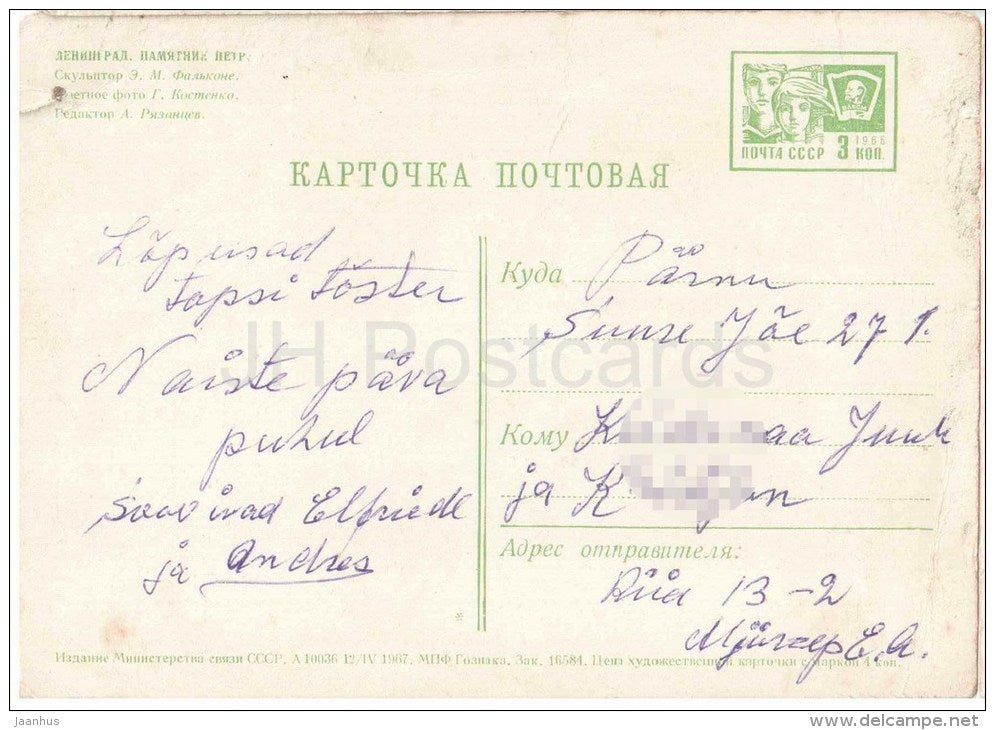 ЛЕНИНГРАД. ПАМЯТНИК ПЕТР
Скульптор Э. М. Фальконе.
Цветное фото Г. Костенко.
Редактор А. Рязанцев.
ВЛКСМ
1966
ПОЧТА СССР 3 КОП
КАРТОЧКА ПОЧТОВАЯ
Lõpusad
topsi töster
Naiste päva
puhul
Soovivad Elfriede
ja Andres
Куда Pärnu
Suure Jõe 27
Кому
ja
Адрес отправителя:
Riia 13-2
JH Postcards
Издание Министерства связи СССР. А 10036 12/IV 1967. МПФ Гознака. Зак. 16584. Цена художественной карточки с маркой 4 коп.
jaanhus
www.delcampe.net